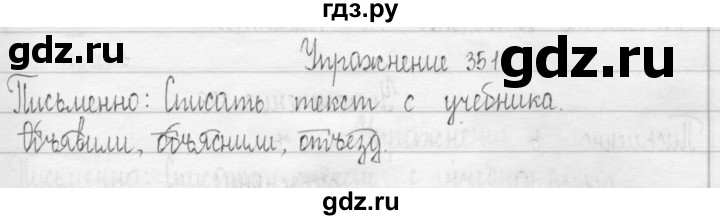 гдз.ру
gdz.ru
gdz.ru
Упражнение 351
Письменно: Списать текст с учебника.
Объявили, объяснили, отъезд.
gdz.ru
gdz.ru